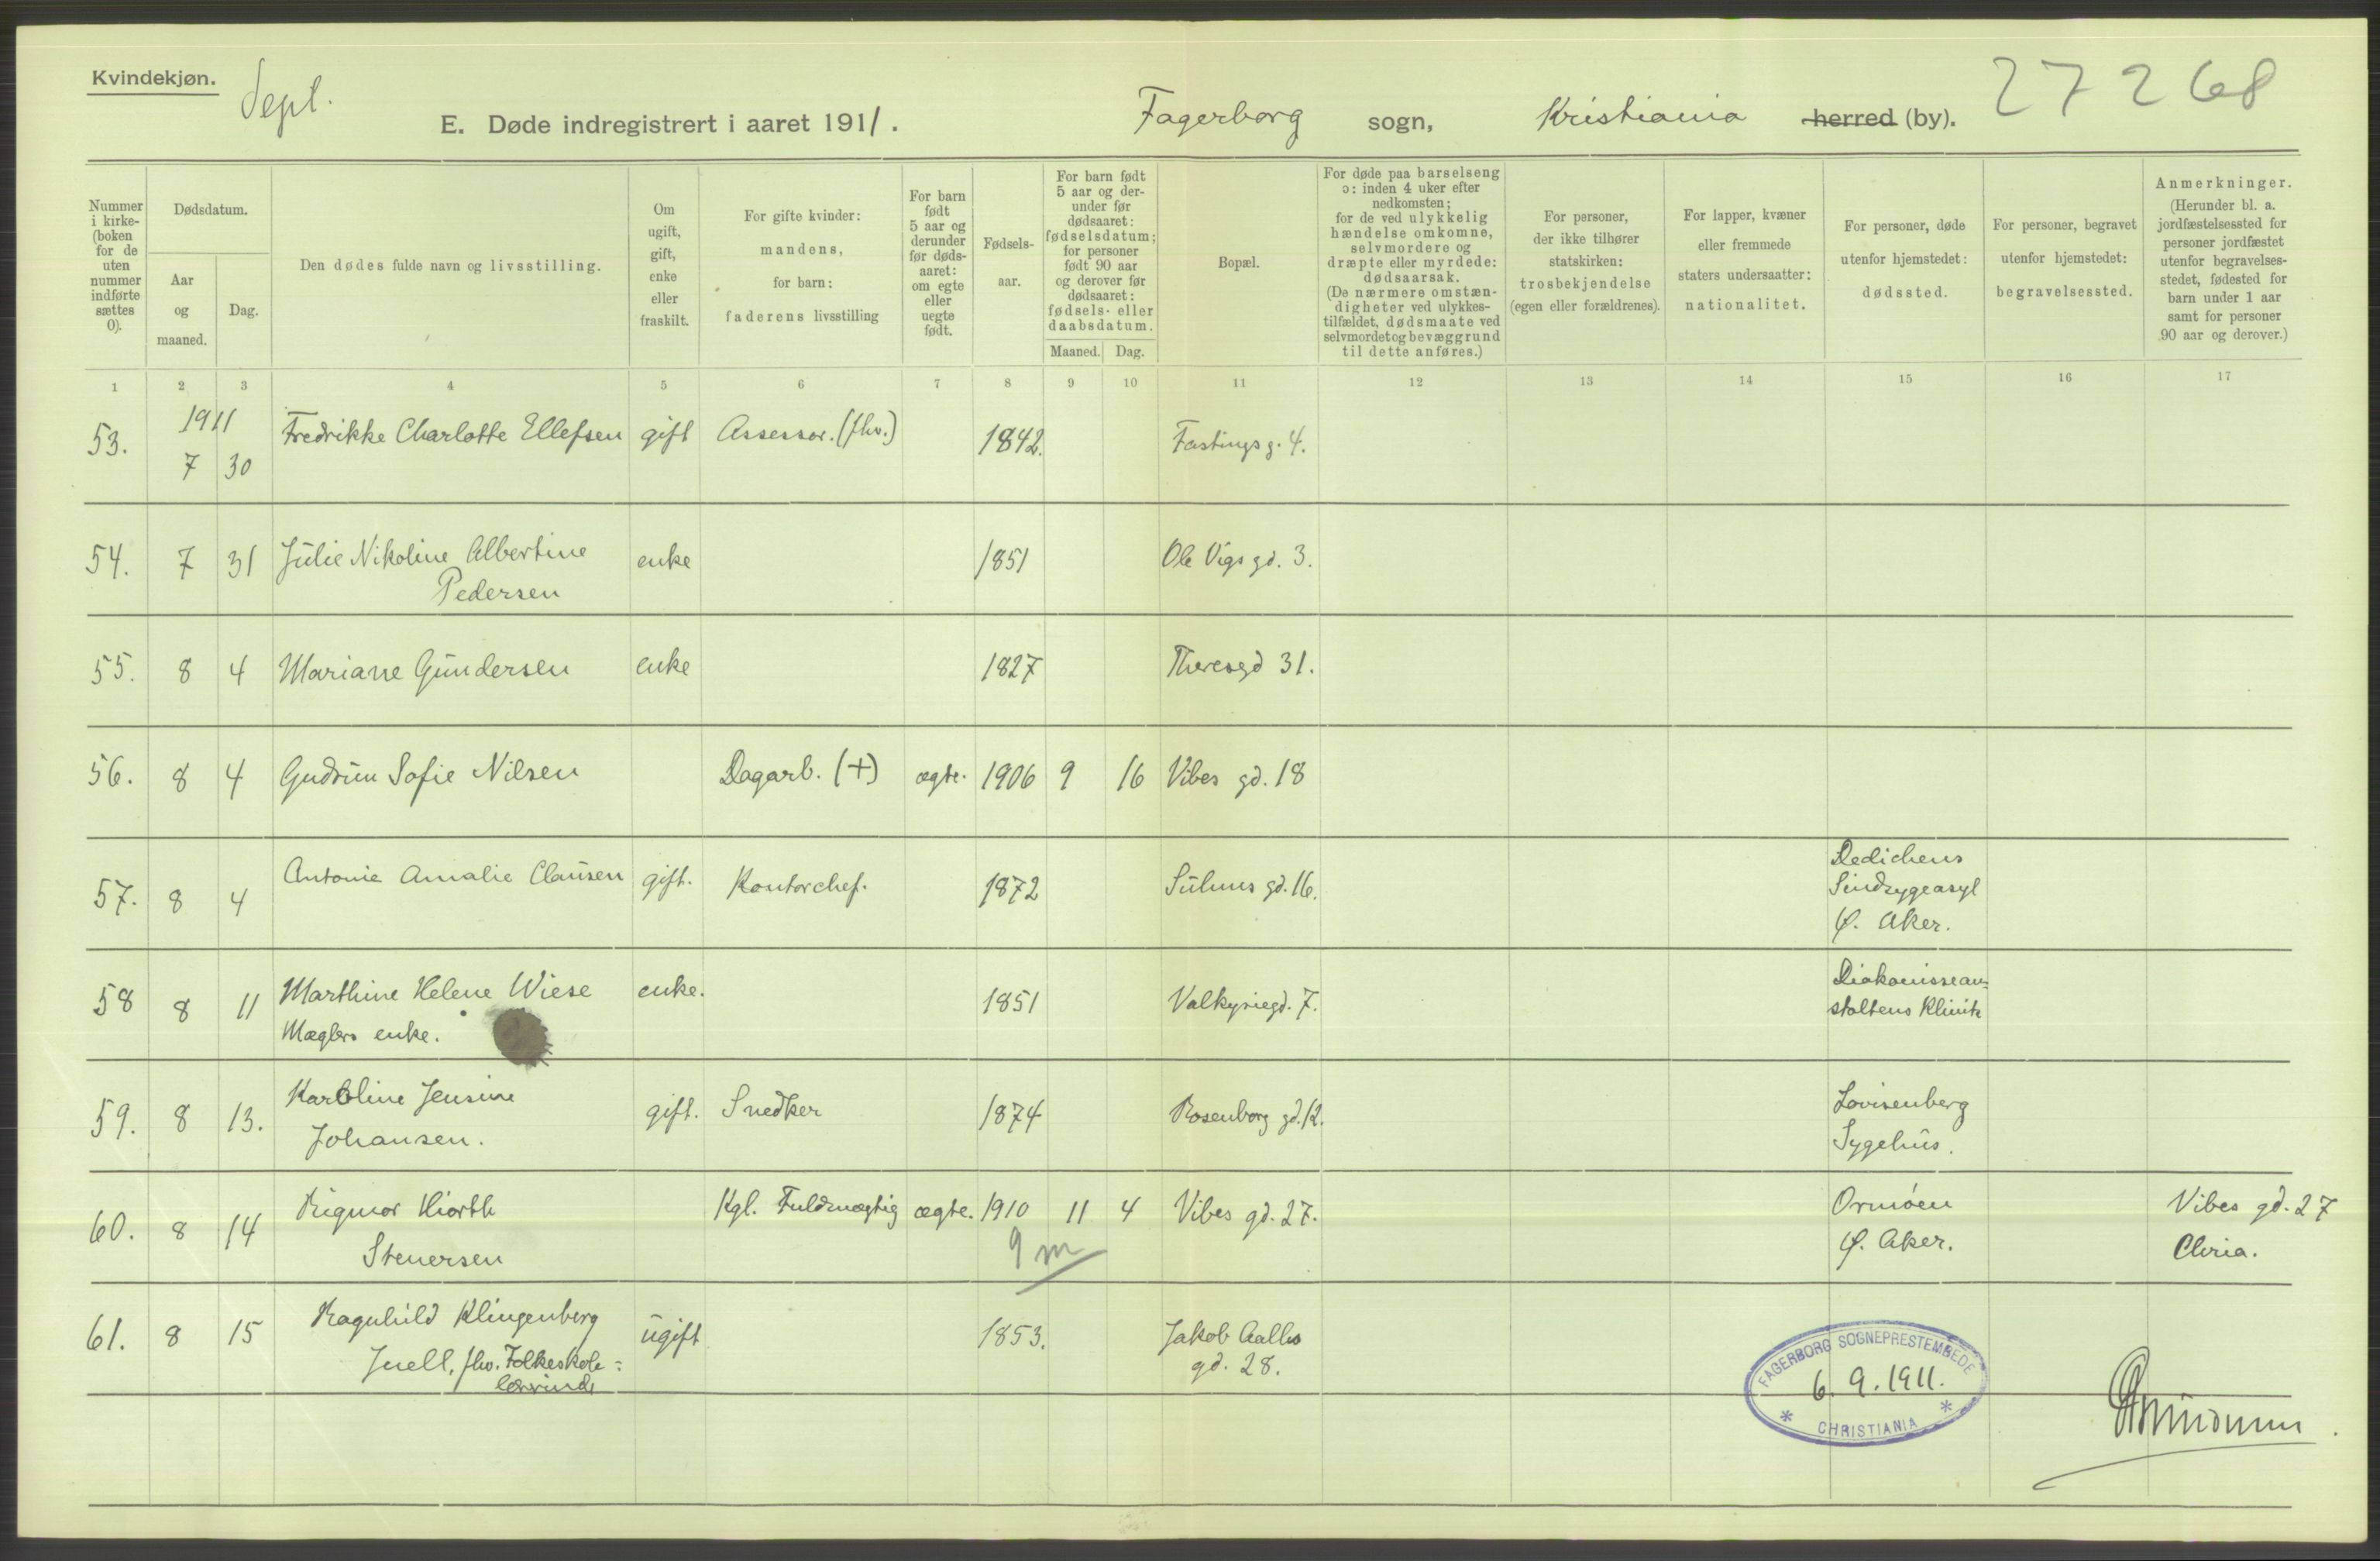 Kvindekjøn.
Sept.
E. Døde indregistrert i aaret 1911.
Fagerborg sogn, Kristiania herred (by).
27268
Nummer i kirke-(boken for de uten nummer indførte sættes 0).
Dødsdatum.
Aar og maaned.
Dag.
Den dødes fulde navn og livsstilling.
Om ugift, gift, enke eller fraskilt.
For gifte kvinder: mandens, for barn: faderens livsstilling
For barn født 5 aar og derunder før døds-aaret: om egte eller uegte født.
Fødsels-aar.
For barn født 5 aar og der-under før dødsaaret: fødselsdatum; for personer født 90 aar og derover før dødsaaret: fødsels- eller daabsdatum.
Maaned. Dag.
Bopæl.
For døde paa barselseng ɔ: inden 4 uker efter nedkomsten; for de ved ulykkelig hændelse omkomne, selvmordere og dræpte eller myrdede: dødsaarsak. (De nærmere omstæn-digheter ved ulykkes-tilfældet, dødsmaate ved selvmordet og bevæggrund til dette anføres.)
For personer, der ikke tilhører statskirken: trosbekjendelse (egen eller forældrenes).
For lapper, kvæner eller fremmede staters undersaatter: nationalitet.
For personer, døde utenfor hjemstedet: dødssted.
For personer, begravet utenfor hjemstedet: begravelsessted.
Anmerkninger. (Herunder bl. a. jordfæstelsessted for personer jordfæstet utenfor begravelses-stedet, fødested for barn under 1 aar samt for personer 90 aar og derover.)
1 2 3 4 5 6 7 8 9 10 11 12 13 14 15 16 17
1911
53. 7 30 Fredrikke Charlotte Ellefsen gift Assessor. (fhv.) 1842. Fastingsg. 4.
54. 7 31 Julie Nikoline Albertine enke 1851 Ole Vigs gd. 3.
Pedersen
55. 8 4 Mariane Gundersen enke 1827 Theresgd 31.
56. 8 4 Gudrun Sofie Nilsen Dagarb. (+) ægte. 1906 9 16 Vibes gd. 18
57. 8 4 Antonie Amalie Clausen gift. Kontorchef. 1872 Suhms gd. 16. Dedichens
Sindsygeasyl
Ø. Aker.
58 8 11 Marthine Helene Wiese enke. 1851 Valkyriegd. 7. Diakonissean=
Mæglers enke. staltens Klinik
59. 8 13. Karoline Jensine gift. Snedker 1874 Rosenborg gd. 12. Lovisenberg
Johansen. Sygehus.
60. 8 14 Rigmor Hiorth Kgl. Fuldmægtig ægte. 1910 11 4 Vibes gd. 27. Ormöen Vibes gd. 27
Stenersen 9 m Ø. Aker. Chria.
61. 8 15 Ragnhild Klingenberg ugift 1853. Jakob Aalls
Juell, fhv. Folkeskole= gd. 28.
lærerinde
FAGERBORG SOGNEPRESTEMBEDE
6. 9. 1911.
* CHRISTIANIA *